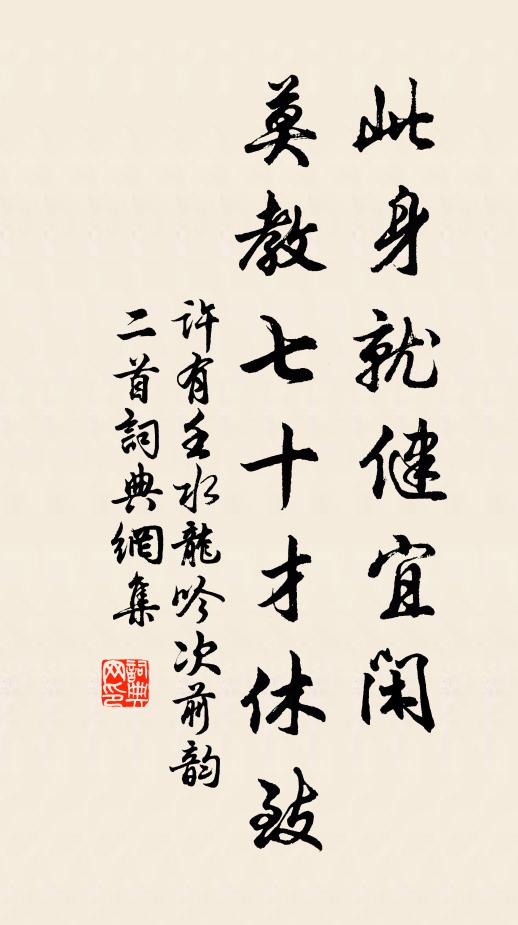 此身就健宜闲
莫教七十才休致
许有壬水龍吟次前韵
二首詞典網集
詞典
网印